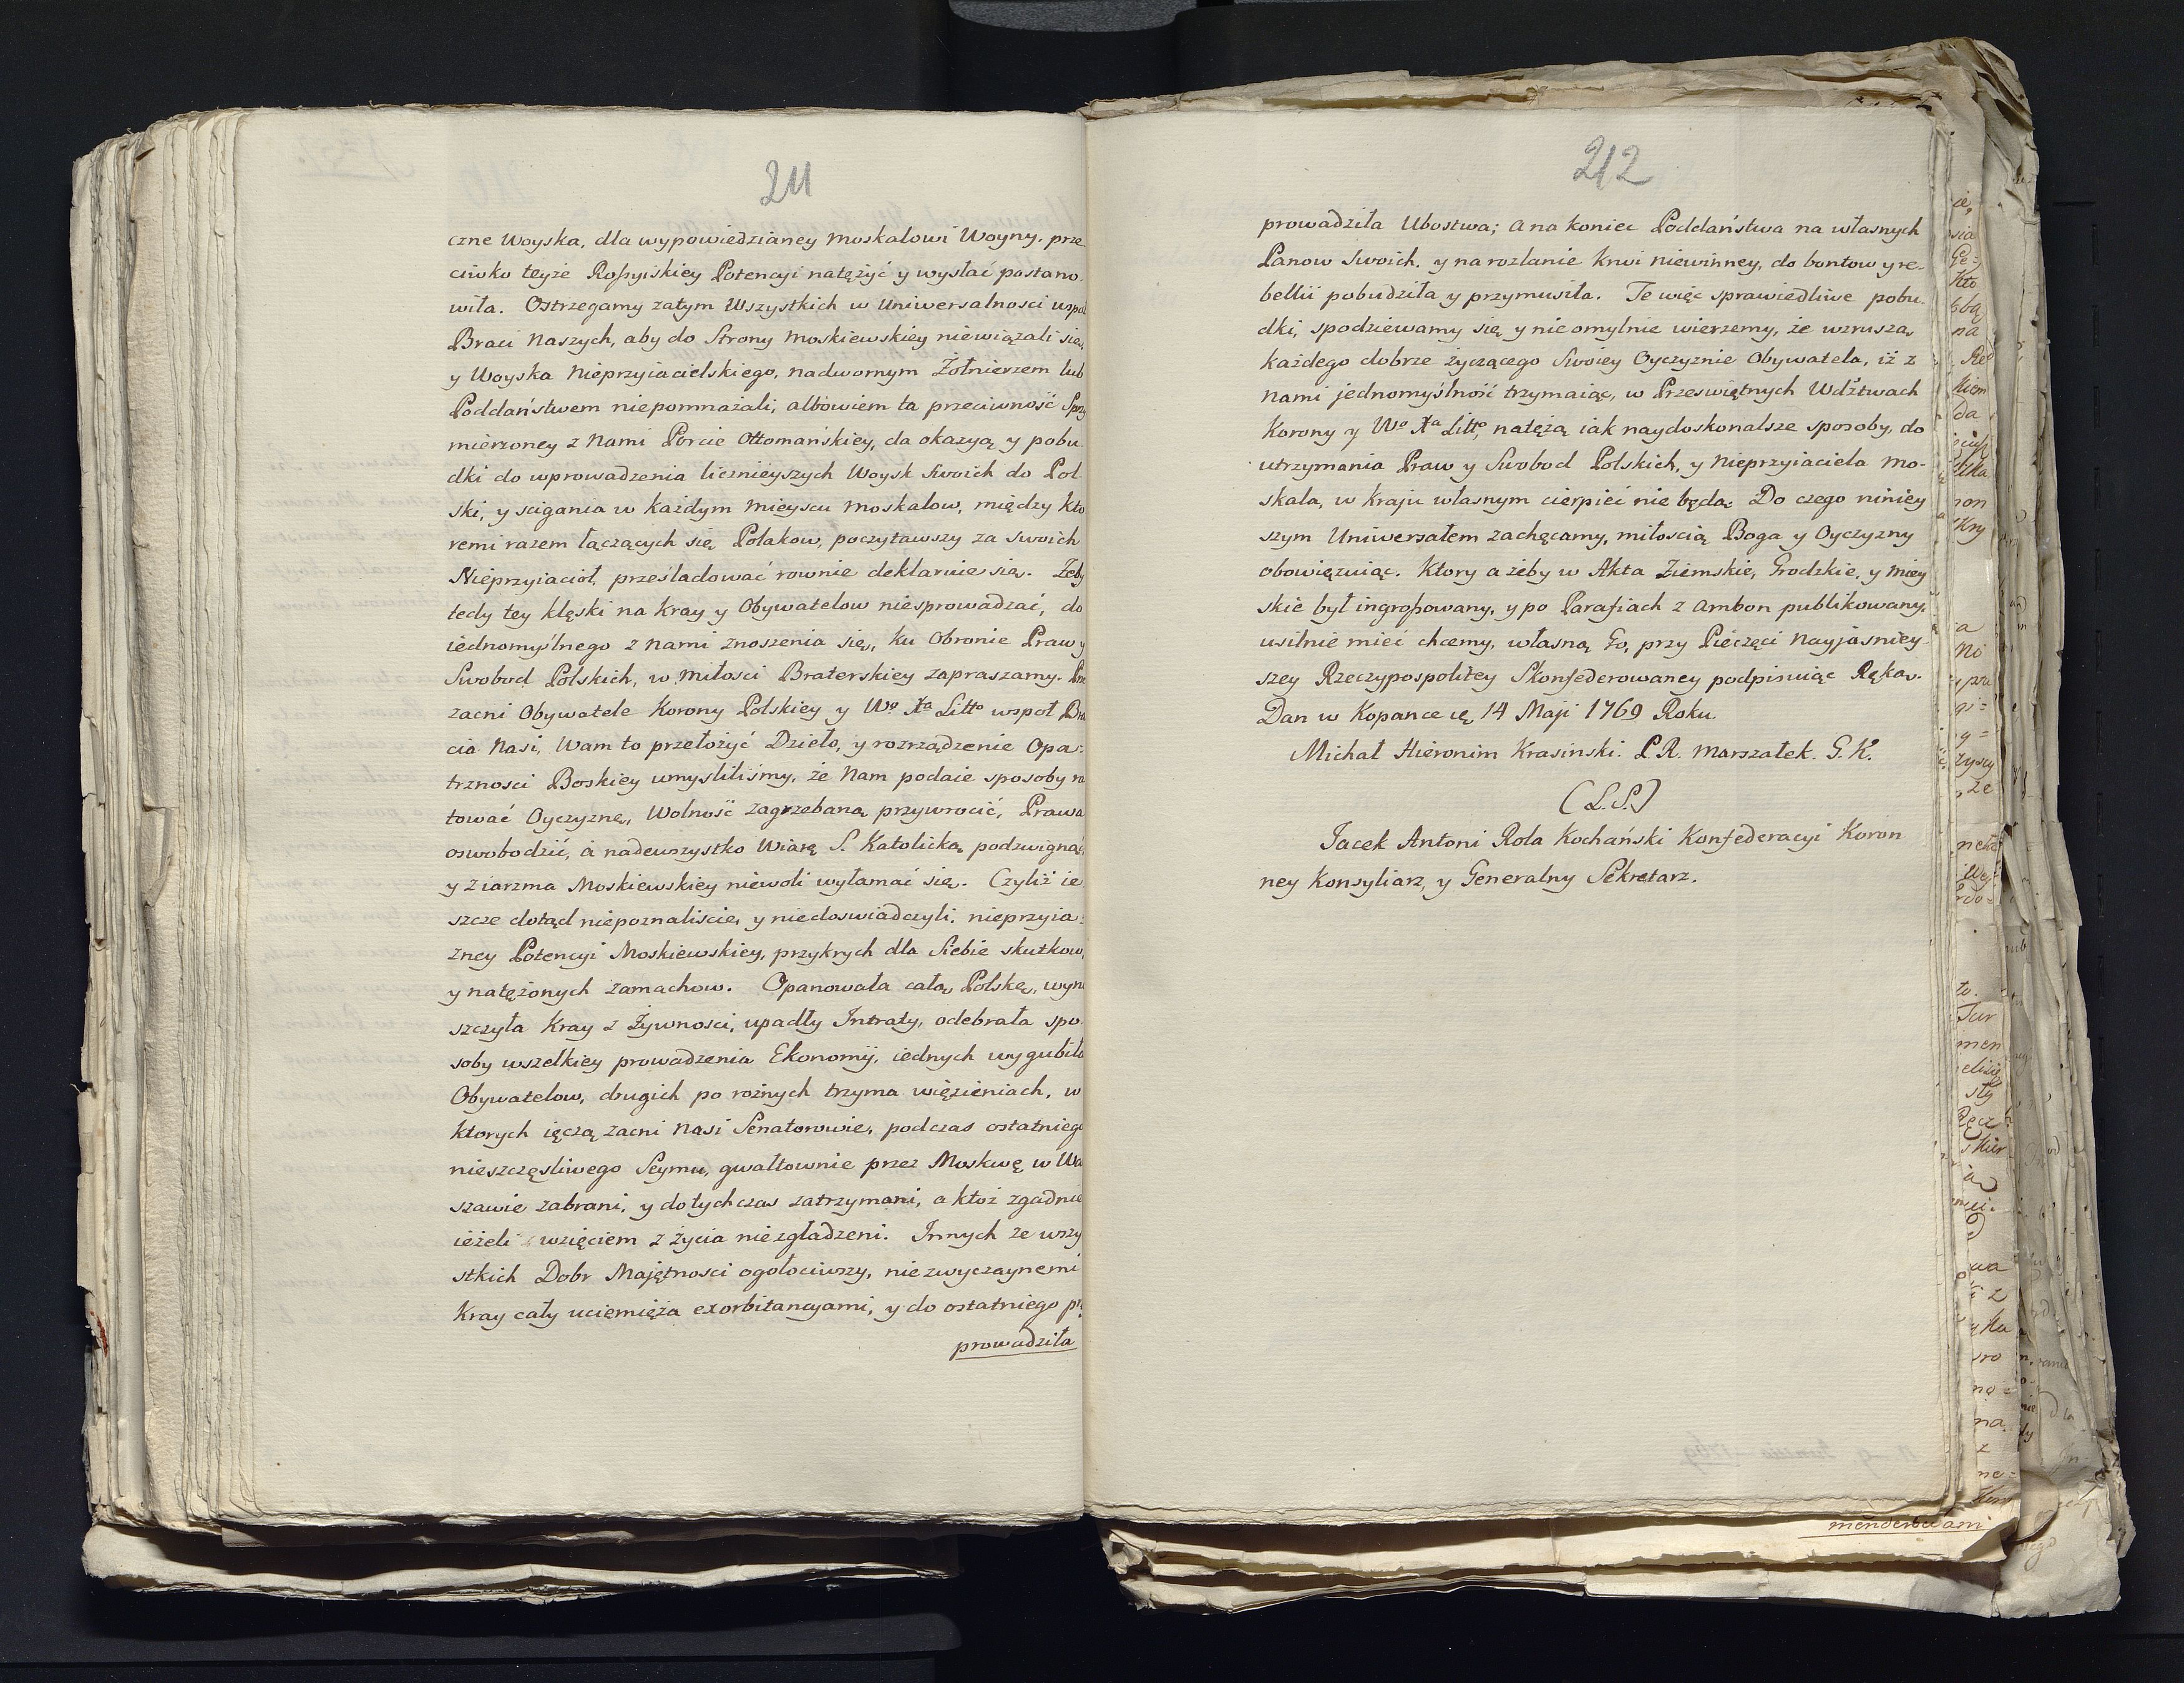 211
czne Woyska, dla wypowiedzianey Moskalowi Woyny. prze
ciwko teyże Roszyiskiey Potencyi natężyć y wysłać postano
wiła. Ostrzegamy zatym Wszystkich w Uniwersalnosci wspoł
Braci Naszych, aby do Strony Moskiewskiey niewiązali się,
y Woyska Nieprzyiacielskiego, nadwornym Żołnierzem lub
Poddaństwem niepomnażali, albowiem ta przeciwność Sprzy
mierzoney z Nami Porcie Ottomańskiey, da okazyą y pobu
dki do wprowadzenia licznieyszych Woysk Swoich do Pol
ski, y scigania w każdym mieyscu Moskalow, między kto
remi razem łączących się Polakow, poczytawszy za Swoich
Nieprzyiacioł, prześladować rownie deklaruie się. Żeby
tedy tey klęski na Kray y Obywatelow niesprowadzać, do
iednomyślnego z Nami znoszenia się, ku Obronie Praw y
Swobod Polskich, w miłosci Braterskiey zapraszamy. Prze
zacni Obywatele Korony Polskiey y Wo Xa Litto wspoł Bra
cia Nasi, Wam to przełożyć Dzieło, y rozrządzenie Opa:
trznosci Boskiey umysliliśmy, że Nam podaie sposoby ra
tować Oyczyznę, Wolność zagrzebaną przywrocić, Prawa
oswobodzić, a nadewszystko Wiarę S. Katolicką podzwignąć,
y z iarzma Moskiewskiey niewoli wyłamać się. Czyliż ie
szcze dotąd niepoznaliście, y niedoswiadczyli, nieprzyia:
zney Potencyi Moskiewskiey, przykrych dla Siebie skutkow,
y natężonych zamachow. Opanowała całą Polskę, wyni
szczyła Kray z Żywnosci, upadły Intraty, odebrała spo
soby wszelkiey prowadzenia Ekonomij, iednych wygubiła
Obywatelow, drugich po rożnych trzyma więzieniach, w
ktorych ięczą zacni Nasi Senatorowie, podczas ostatniego
nieszczęsliwego Seymu, gwałtownie przez Moskwę w Wa
szawie zabrani, y dotychczas zatrzymani, a ktoż zgadnie
ieżeli wzięciem z życia niezgładzeni. Innych ze wszy
stkich Dobr Majętnosci ogołociwszy, niezwyczaynemi
Kray cały uciemięża exorbitancyami, y do ostatniego przy
prowadziła
212
prowadziła Ubostwa; a na koniec Poddaństwa na własnych
Panow Swoich, y na rozlanie krwi niewinney, do bontow y re-
bellii pobudziła y przymusiła. Te więc sprawiedliwe pobu
dki, spodziewamy się y nieomylnie wierzemy, że wzruszą
każdego dobrze życzącego Swoiey Oyczyznie Obywatela, iż z
nami jednomyślność trzymaiąc, w Przeswiętnych Wdztwach
Korony y Wo Xa Litto, natężą iak naydoskonalsze sposoby, do
utrzymania Praw y Swobod Polskich, y Nieprzyiaciela Mo-
skala, w kraju własnym cierpieć nie będą. Do czego niniey
szym Uniwersałem zachęcamy, miłoscią Boga y Oyczyzny
obowięzuiąc. Ktory ażeby w Akta Ziemskie, Grodzkie, y Miey
skie był ingrossowany, y po Parafiach z ambon publikowany,
usilnie mieć chcemy, własną Go, przy Pieczęci Nayjasniey
szey Rzeczypospolitey Skonfederowaney podpisuiąc Ręką.
Dan w Kopance ię 14 Maji 1769 Roku.
Michał Hieronim Krasinski. P. R. Marszałek. G. K.
(L.S.)
Jacek Antoni Rola Kochański Konfederacyi Koron
ney Konsyliarz, y Generalny Sekretarz.